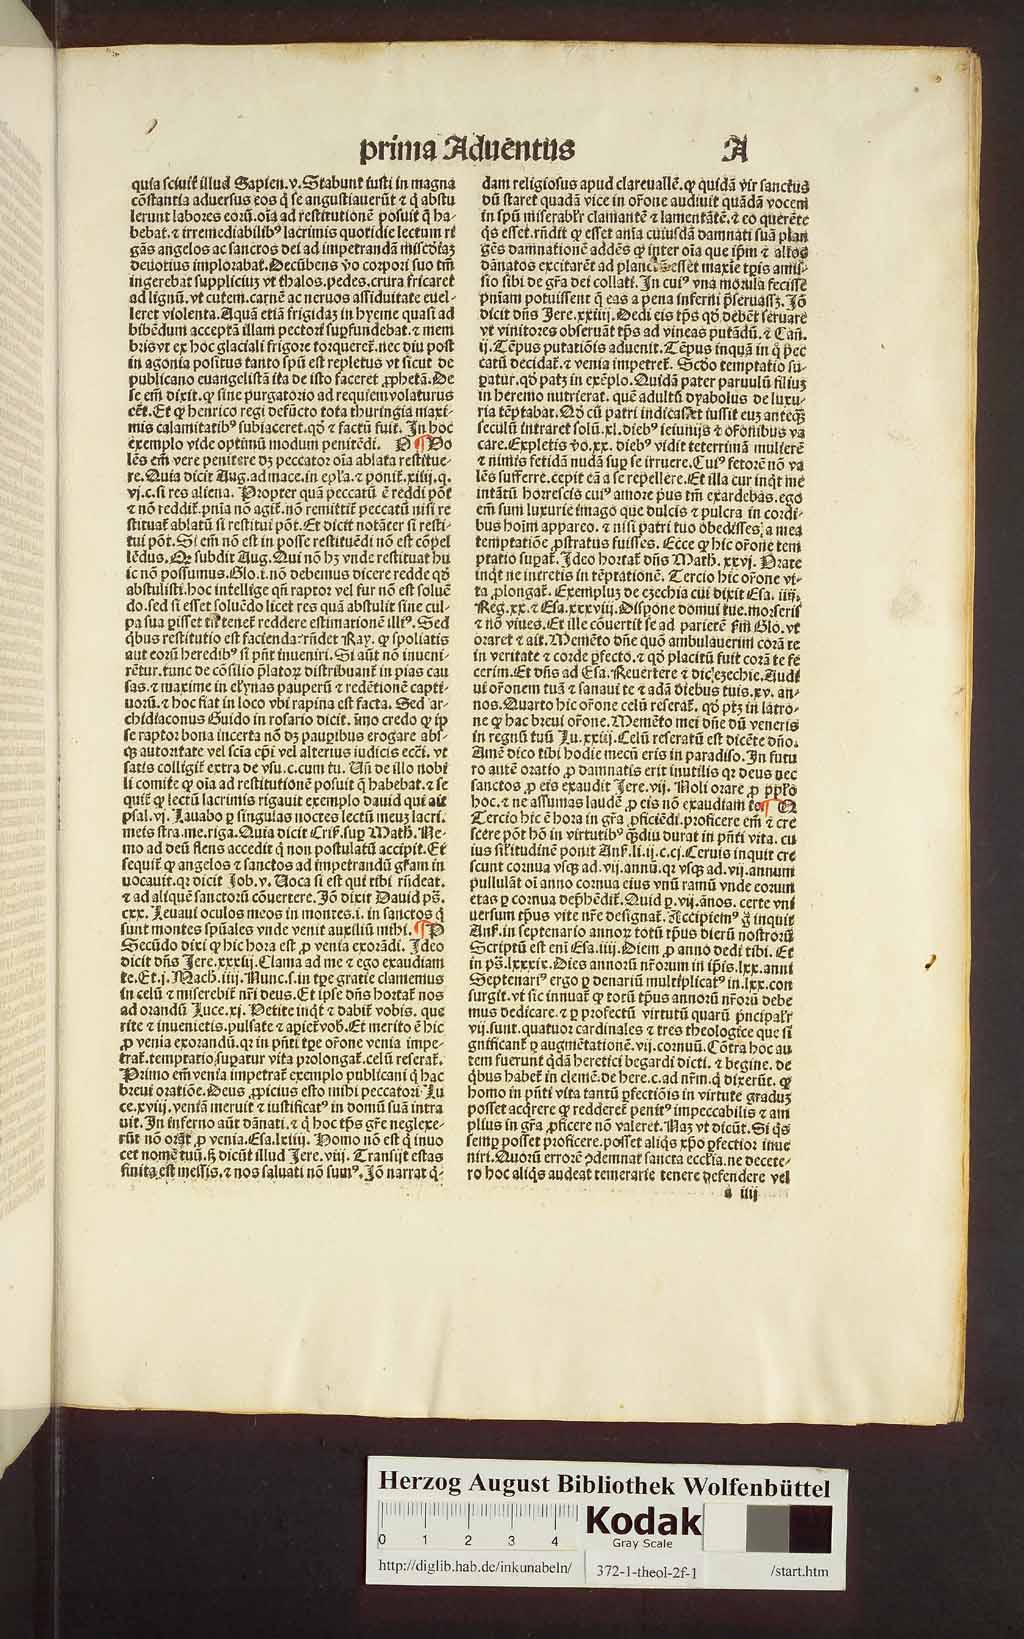 prima Aduentus A
quia sciuit illud Sapien. v. Stabunt iusti in magna
cōstantia aduersus eos q̄ se angustiauerūt ⁊ q̄ abstu
lerunt labores eorū. oīa ad restitutionē posuit q̄ ha-
bebat. ⁊ irremediabilibꝰ lacrimis quotidie lectum ri
gās angelos ac sanctos dei ad impetrandā misc̄diaꝫ
deuotius implorabat. Decūbens v̄o corpori suo tm̄
ingerebat suppliciuꝫ vt thalos. pedes. crura fricaret
ad lignū. vt cutem. carnē ac neruos assiduitate euel-
leret violenta. Aquā etiā frigidaꝫ in hyeme quasi ad
bibēdum acceptā illam pectori suꝑfundebat. ⁊ mem
bris vt ex hoc glaciali frigore torqueret̄. nec diu post
in agonia positus tanto spū est repletus vt sicut de
publicano euangelistā ita de isto faceret ꝓphetā. De
se em̄ dixit. ꝙ sine purgatorio ad requiem volaturus
eēt. Et ꝙ henrico regi defūcto tota thuringia maxi-
mis calamitatibꝰ subiaceret. qḋ ⁊ factū fuit. In hoc
exemplo vide optimū modum penitēdi. O ¶ Vo
lēs em̄ vere penitere dꝫ peccator oīa ablata restitue-
re. Quia dicit Aug. ad mace. in epl̄a. ⁊ ponit̄. xiiij. q.
vj. c. si res aliena. Propter quā peccatū ē reddi pōt
⁊ nō reddit̄. pnīa nō agit̄. nō remittit̄ peccatū nisi re
stituat̄ ablatū si restitui pōt. Et dicit notāter si resti-
tui pōt. Si em̄ nō est in posse restituēdi nō est cōpel
lēdus. Qꝛ subdit Aug. Qui nō hꝫ vnde restituat hu
ic nō possumus. Glo. i. nō debemus dicere redde qḋ
abstulisti. hoc intellige qn̄ raptor vel fur nō est soluē
do. sed si esset soluēdo licet res quā abstulit sine cul-
pa sua ꝑisset tn̄ tenet̄ reddere estimationē illiꝰ. Sed
q̇bus restitutio est facienda. rn̄det Ray. ꝙ spoliatis
aut eorū heredibꝰ si pn̄t inueniri. Si aūt nō inueni-
rētur. tunc de cōsilio p̄latoꝝ distribuant̄ in pias cau
sas. ⁊ maxime in elȳnas pauperū ⁊ redētionē capti-
uorū. ⁊ hoc fiat in loco vbi rapina est facta. Sed ar-
chidiaconus Guido in rosario dicit. īmo credo ꝙ ip
se raptor bona incerta nō dꝫ pauꝑibus erogare abs-
qꝫ autoritate vel sciā ep̄i vel alterius iudicis ecc̄i. vt
satis colligit̄ extra de vsu. c. cum tu. Un̄ de illo nobi
li comite ꝙ oīa ad restitutionē posuit q̄ habebat. ⁊ se
quit̄ ꝙ lectū lacrimis rigauit exemplo dauid qui ait
psal. vj. Lauabo ꝑ singulas noctes lectū meuꝫ lacri.
meis stra. me. riga. Quia dicit Cris̄. suꝑ Math. Ne-
mo ad deū flens accedit q̄ non postulatū accipit. Et
sequit̄ ꝙ angelos ⁊ sanctos ad impetrandū gr̄am in
uocauit. qꝛ dicit Job. v. Uoca si est qui tibi rn̄deat.
⁊ ad aliquē sanctorū cōuertere. Jō dixit Dauid ps̄.
cxx. Leuaui oculos meos in montes. i. in sanctos q̄
sunt montes spūales vnde venit auxiliū mihi. ¶ P
Secūdo dixi ꝙ hic hora est ꝓ venia exorādi. Ideo
dicit dn̄s Jere. xxxiij. Clama ad me ⁊ ego exaudiam
te. Et. j. Mach. iiij. Nunc. s. in tꝑe gratie clamemus
in celū ⁊ miserebit̄ nr̄i deus. Et ipse dn̄s hortat̄ nos
ad orandū Luce. xj. Petite inq̇t ⁊ dabit̄ vobis. que
rite ⁊ inuenietis. pulsate ⁊ aꝑiet̄ vob̄. Et merito ē hic
ꝓ venia exorandū. qꝛ in pn̄ti tꝑe or̄one venia impe-
trat̄. temptatio suꝑatur vita prolongat̄. celū reserat̄.
Primo em̄ venia impetrat̄ exemplo publicani q̄ hac
breui oratiōe. Deus ꝓpicius esto mihi peccatori. Lu
ce. xviij. veniā meruit ⁊ iustificatꝰ in domū suā intra
uit. In inferno aūt dānati. ⁊ q̄ hoc tp̄s gr̄e neglexe-
rūt nō orāt ꝓ venia. Esa. lxiiij. Homo nō est q̄ inuo
cet nomē tuū. sꝫ dicūt illud Jere. viij. Transijt estas
finita est messis. ⁊ nos saluati nō sumꝰ. Jō narrat q̄-
dam religiosus apud clareuallē. ꝙ quidā vir sanctus
dū staret quadā vice in or̄one audiuit quādā vocem
in spū miserabl̄r clamantē ⁊ lamentātē. ⁊ eo querēte
q̇s esset. rn̄dit ꝙ esset anīa cuiusdā damnati suā plan
gēs damnationē addēs ꝙ inter oīa que ip̄m ⁊ alios
dānatos excitarēt ad planctū esset maxīe tꝑis amis-
sio sibi de gr̄a dei collati. In cuiꝰ vna morula fecisse
pnīam potuissent q̄ eas a pena inferni p̄seruassꝫ. Jō
dicit dn̄s Jere. xxiij. Dedi eis tp̄s qḋ debēt seruare
vt vinitores obseruāt tp̄s ad vineas putādū. ⁊ Cañ.
ij. Tēpus putatiōis aduenit. Tēpus inquā in q̊ pec
catū decidat̄. ⁊ venia impetret̄. Scḋo temptatio su-
ꝑatur. qḋ patꝫ in exēplo. Quidā pater paruulū filiuꝫ
in heremo nutrierat. quē adultū dyabolus de luxu-
ria tēptabat. Qḋ cū patri indicasset iussit euꝫ anteq̄ꝫ
seculū intraret solū. xl. diebꝰ ieiunijs ⁊ or̄onibus va
care. Expletis v̄o. xx. diebꝰ vidit teterrimā mulierē
⁊ nimis fetidā nudā suꝑ se irruere. Cuiꝰ fetorē nō va
lēs sufferre. cepit eā a se repellere. Et illa cur inq̇t me
intātū horrescis cuiꝰ amore p̄us tm̄ exardebas. ego
em̄ sum luxurie imago que dulcis ⁊ pulcra in cordi-
bus hoīm appareo. ⁊ nisi patri tuo obedisses. a mea
temptatiōe ꝓstratus fuisses. Ecce ꝙ hic or̄one tem
ptatio suꝑat̄. Ideo hortat̄ dn̄s Math. xxvj. Orate
inq̇t ne intretis in tēptationē. Tercio hic or̄one vi-
ta ꝓlongat̄. Exempluꝫ de ezechia cui dixit Esa. iiij.
Reg. xx. ⁊ Esa. xxxviij. Dispone domui tue. morieris
⁊ nō viues. Et ille cōuertit se ad parietē fm̄ Glo. vt
oraret ⁊ ait. Memēto dn̄e quō ambulauerim corā te
in veritate ⁊ corde ꝑfecto. ⁊ qḋ placitū fuit corā te fe
cerim. Et dn̄s ad Esa. Reuertere ⁊ dic ezechie. Audi
ui or̄onem tuā ⁊ sanaui te ⁊ adā diebus tuis. xv. an-
nos. Quarto hic or̄one celū reserat̄. qḋ ptꝫ in latro-
ne ꝙ hac breui or̄one. Memēto mei dn̄e dū veneris
in regnū tuū Lu. xxiij. Celū reseratū est dicēte dn̄o.
Amē dico tibi hodie mecū eris in paradiso. In futu
ro autē oratio ꝓ damnatis erit inutilis qꝛ deus nec
sanctos ꝓ eis exaudit Jere. vij. Noli orare ꝓ ppl̄o
hoc. ⁊ ne assumas laudē ꝓ eis nō exaudiam te ¶ Q
Tercio hic ē hora in gr̄a ꝓficiēdi. proficere em̄ ⁊ cre
scere pōt hō in virtutibꝰ q̄ꝫdiu durat in pn̄ti vita. cu
ius sil̄itudinē ponit Ans̄. li. ij. c. cj. Ceruis inquit cre
scunt cornua vsqꝫ ad. vij. annū. qꝛ vsqꝫ ad. vij. annum
pullulāt oī anno cornua eius vnū ramū vnde eorum
etas ꝑ cornua dep̄hēdit̄. Quid ꝑ. vij. ānos. certe vni
uersum tp̄us vite nr̄e designat̄. Accipiemꝰ g̊ inquit
Ans̄. in septenario annoꝝ totū tp̄us dierū nostrorū
Scriptū est enī Esa. iiij. Diem ꝓ anno dedi tibi. Et
in ps̄. lxxxix. Dies annorū nr̄orum in ip̄is. lxx. anni
Septenariꝰ ergo ꝑ denariū multiplicatꝰ in. lxx. con
surgit. vt sic innuat̄ ꝙ totū tp̄us annorū nr̄orū debe
mus dedicare. ⁊ ꝑ profectū virtutū quarū p̄ncipal̄r
vij. sunt. quatuor cardinales ⁊ tres theologice que si
gnificant̄ ꝑ augmētationē. vij. cornuū. Cōtra hoc au
tem fuerunt q̇dā heretici begardi dicti. ⁊ begine. de
q̇bus habet̄ in clemē. de here. c. ad nr̄m. q̄ dixerūt. ꝙ
homo in pn̄ti vita tantū ꝑfectiōis in virtute graduꝫ
posset acq̇rere ꝙ redderet̄ penitꝰ impeccabilis ⁊ am
plius in gr̄a ꝓficere nō valeret. Naꝫ vt dicūt. Si q̇s
semꝑ posset proficere. posset aliq̇s xp̄o ꝑfectior inue
niri. Quorū errorē ꝯdemnat sancta eccl̄ia. ne decete-
ro hoc aliq̇s audeat temerarie tenere defendere vel
a iiij
Herzog August Bibliothek Wolfenbüttel
0 1 2 3 4
Kodak
Gray Scale
http://diglib.hab.de/inkunabeln/ 372-1-theol-2f-1 /start.htm